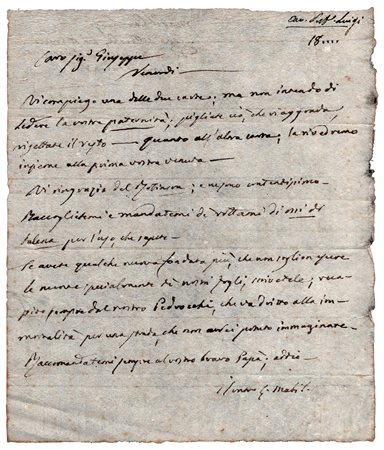 18....
Caro sig.r Giuseppe
Venerdì
Vi compiego una delle due carte; ma non intendo di
ledere la vostra paternità; pigliate ciò, che vi aggrada,
rigettate il resto — quanto all'altra carta, la rivedremo
insieme alla prima vostra venuta —
Vi ringrazio del ; e ne sono contentissimo —
Raccoglietemi e mandatemi de' rottami di ossi di
balena per l'uso, che sapete —
Se avete qualche nuova fondata più, che non sogliono essere
le nuove specialmente de' nostri fogli, scrivetele; 
sempre dal nostro Pedrocchi, che va dritto alla im-
mortalità per una strada, che non avrei potuto immaginare —
Raccomandatemi sempre al vostro bravo Papà; addio —
Mabil